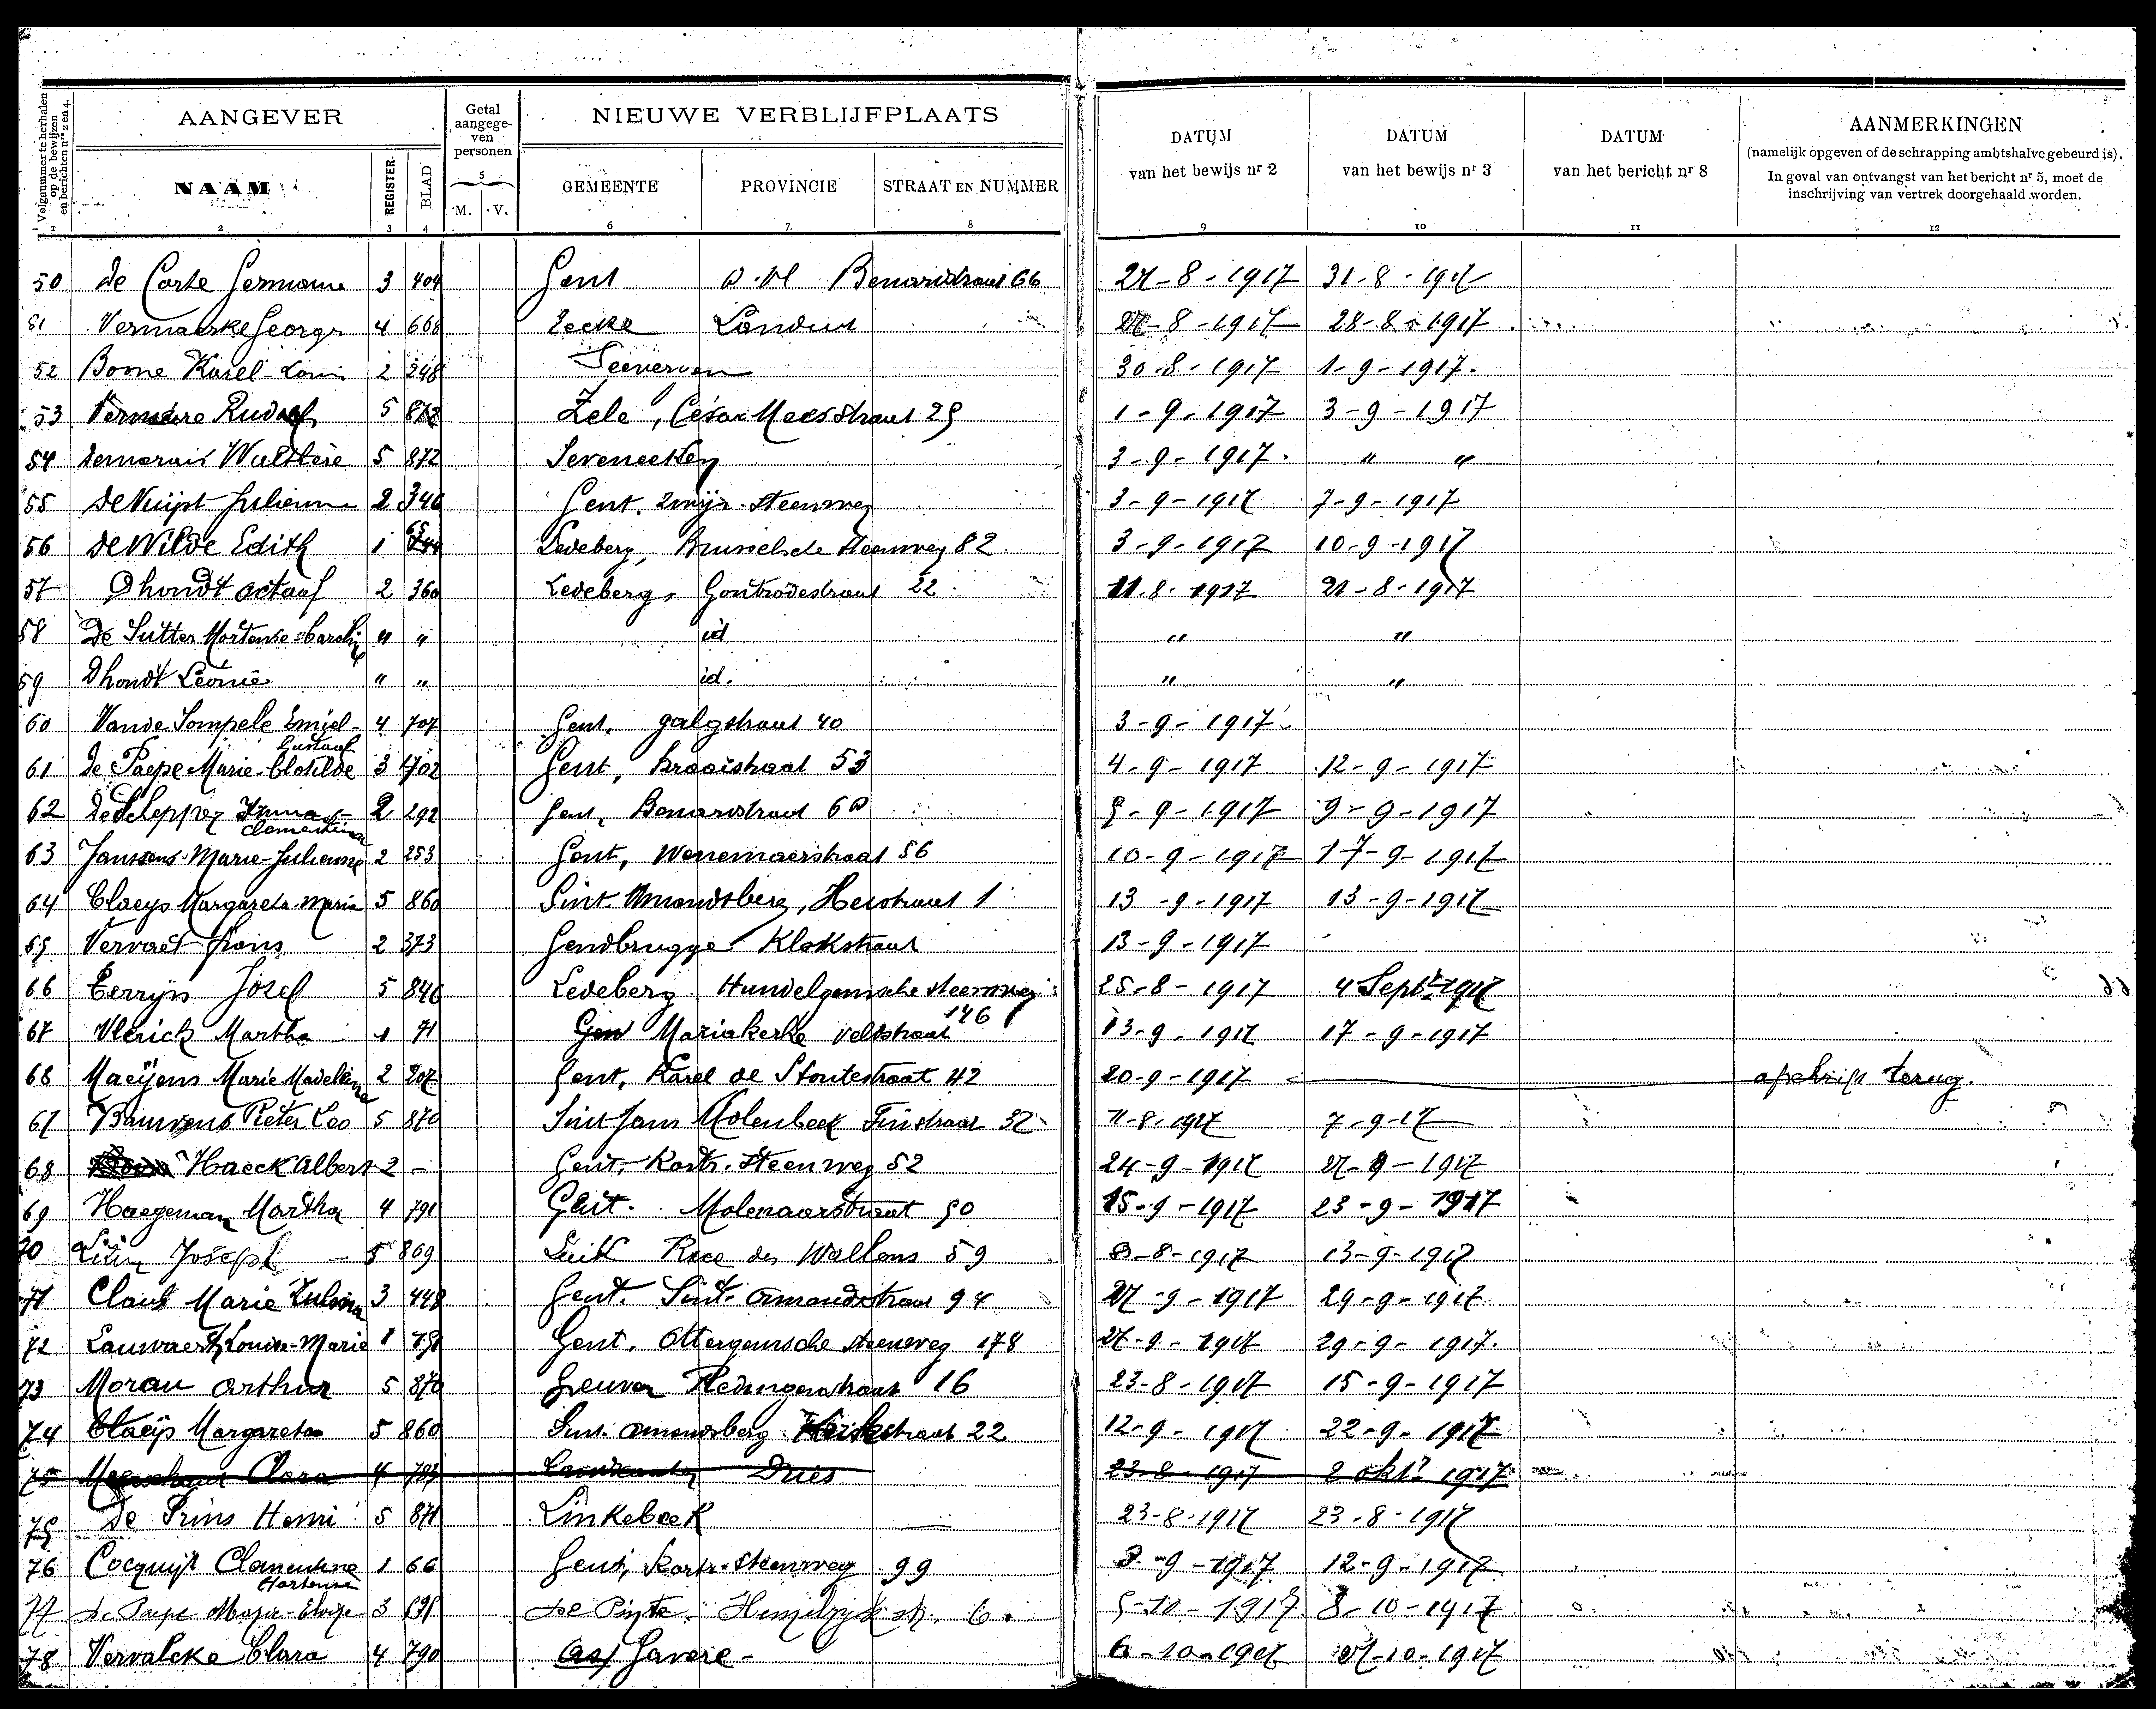 Volgnummer te herhalen op de bewijzen en berichten nrs 2 en 4.
AANGEVER
Getal aangegeven personen
NIEUWE VERBLIJFPLAATS
DATUM van het bewijs nr 2
DATUM van het bewijs nr 3
DATUM van het bericht nr 8
AANMERKINGEN
(namelijk opgeven of de schrapping ambtshalve gebeurd is).
In geval van ontvangst van het bericht nr 5, moet de
inschrijving van vertrek doorgehaald worden.
NAAM REGISTER. BLAD M. V. GEMEENTE PROVINCIE STRAAT EN NUMMER
1 2 3 4 5 6 7 8 9 10 11 12
50 de Corte Germaine 3 404 Gent O. Vl Benardstraat 66 27-8-1917 31-8-1917
51 Vermaerke George 4 668 Eecke Landuit 27-8-1917 28-8-1917
52 Borne Karel-Louis 2 248 30-8-1917 1-9-1917.
53 Vermeire Rudolf 5 872 Zele, César Meesstraat 29 1-9-1917 3-9-1917
54 Demarais Walthère 5 872 Seveneeken 3-9-1917. " "
55 De Nuijst Julienne 2 346 Gent. Zwijn. Steenweg 3-9-1917 7-9-1917
56 De Wilde Edith 1 65 Ledeberg, Brusselsche Steenweg 82 3-9-1917 10-9-1917
57 Dhondt octaaf 2 360 Ledeberg, Gontrodestraat 22 11.8.1917 21-8-1917
58 De Sutter Hortense-Caroline " " id " "
59 Dhondt Léonie " " id. " "
60 Vande Sompele Emiel-Gustaaf 4 707 Gent, galgstraat 40 3-9-1917
61 de Paepe Marie-Clotilde 3 702 Gent, Kraaistraat 53 4-9-1917 12-9-1917
62 De Schepper Irma-Clementina 2 292 Gent, Benardstraat 60 5-9-1917 9-9-1917
63 Janssens Marie-Julienne 2 253 Gent, Wenemaerstraat 56 10-9-1917 17-9-1917
64 Claeys Margareta-Maria 5 860 Sint Amandsberg, Heistraat 1 13-9-1917 13-9-1917
65 Vervaet frans 2 373 Gendbrugge Klokstraat 13-9-1917
66 Terryn Jozef 5 846 Ledeberg Hundelgemsche steenweg 25-8-1917 4 Septr 1917
146
67 Vlerick Martha 1 71 Gent Mariakerke Veldstraat 13-9-1917 17-9-1917
68 Maeijens Marie Madeleine 2 207 Gent, Karel de Stoutestraat 42 20-9-1917 afschrift terug.
67 Bauwens Pieter Leo 5 870 Sint Jans Molenbeek Finstraat 32 11-8-1917 7-9-17
68 Haeck Albert 2 - Gent, Kortr. Steenweg 52 24-9-1917 27-9-1917
69 Haegeman Martha 4 791 Gent. Molenaarstraat 50 15-9-1917 23-9-1917
70 Joseph 5 869 Luik Rue des Wallons 59 8-8-1917 13-9-1917
71 Claus Marie Zulma 3 448 Gent. Sint-Amandstraat 94 27-9-1917 29-9-1917
72 Lauwaert Louise-Marie 1 Gent. Ottergemsche Steenweg 178 27-9-1917 29-9-1917.
73 Morau Arthur 5 870 16 23-8-1917 15-9-1917
74 Claeijs Margareta 5 860 Sint. Amandsberg Kerkstraat 22 12-9-1917 22-9-1917
75 Clara 4 707 Dries 23-8-1917 2 oktr 1917
75 De Prins Henri 5 871 Linkebeek 23-8-1917 23-8-1917
76 Cocquijt Clementine Hortense 1 66 Gent, Kortr. Steenweg 99 3-9-1917 12-9-1917
77 De Paepe Maria-Eloize 3 De Pinte 6. 5-10-1917 8-10-1917
78 Vervalcke Clara 4 790 Gavere- 6-10-1917 27-10-1917